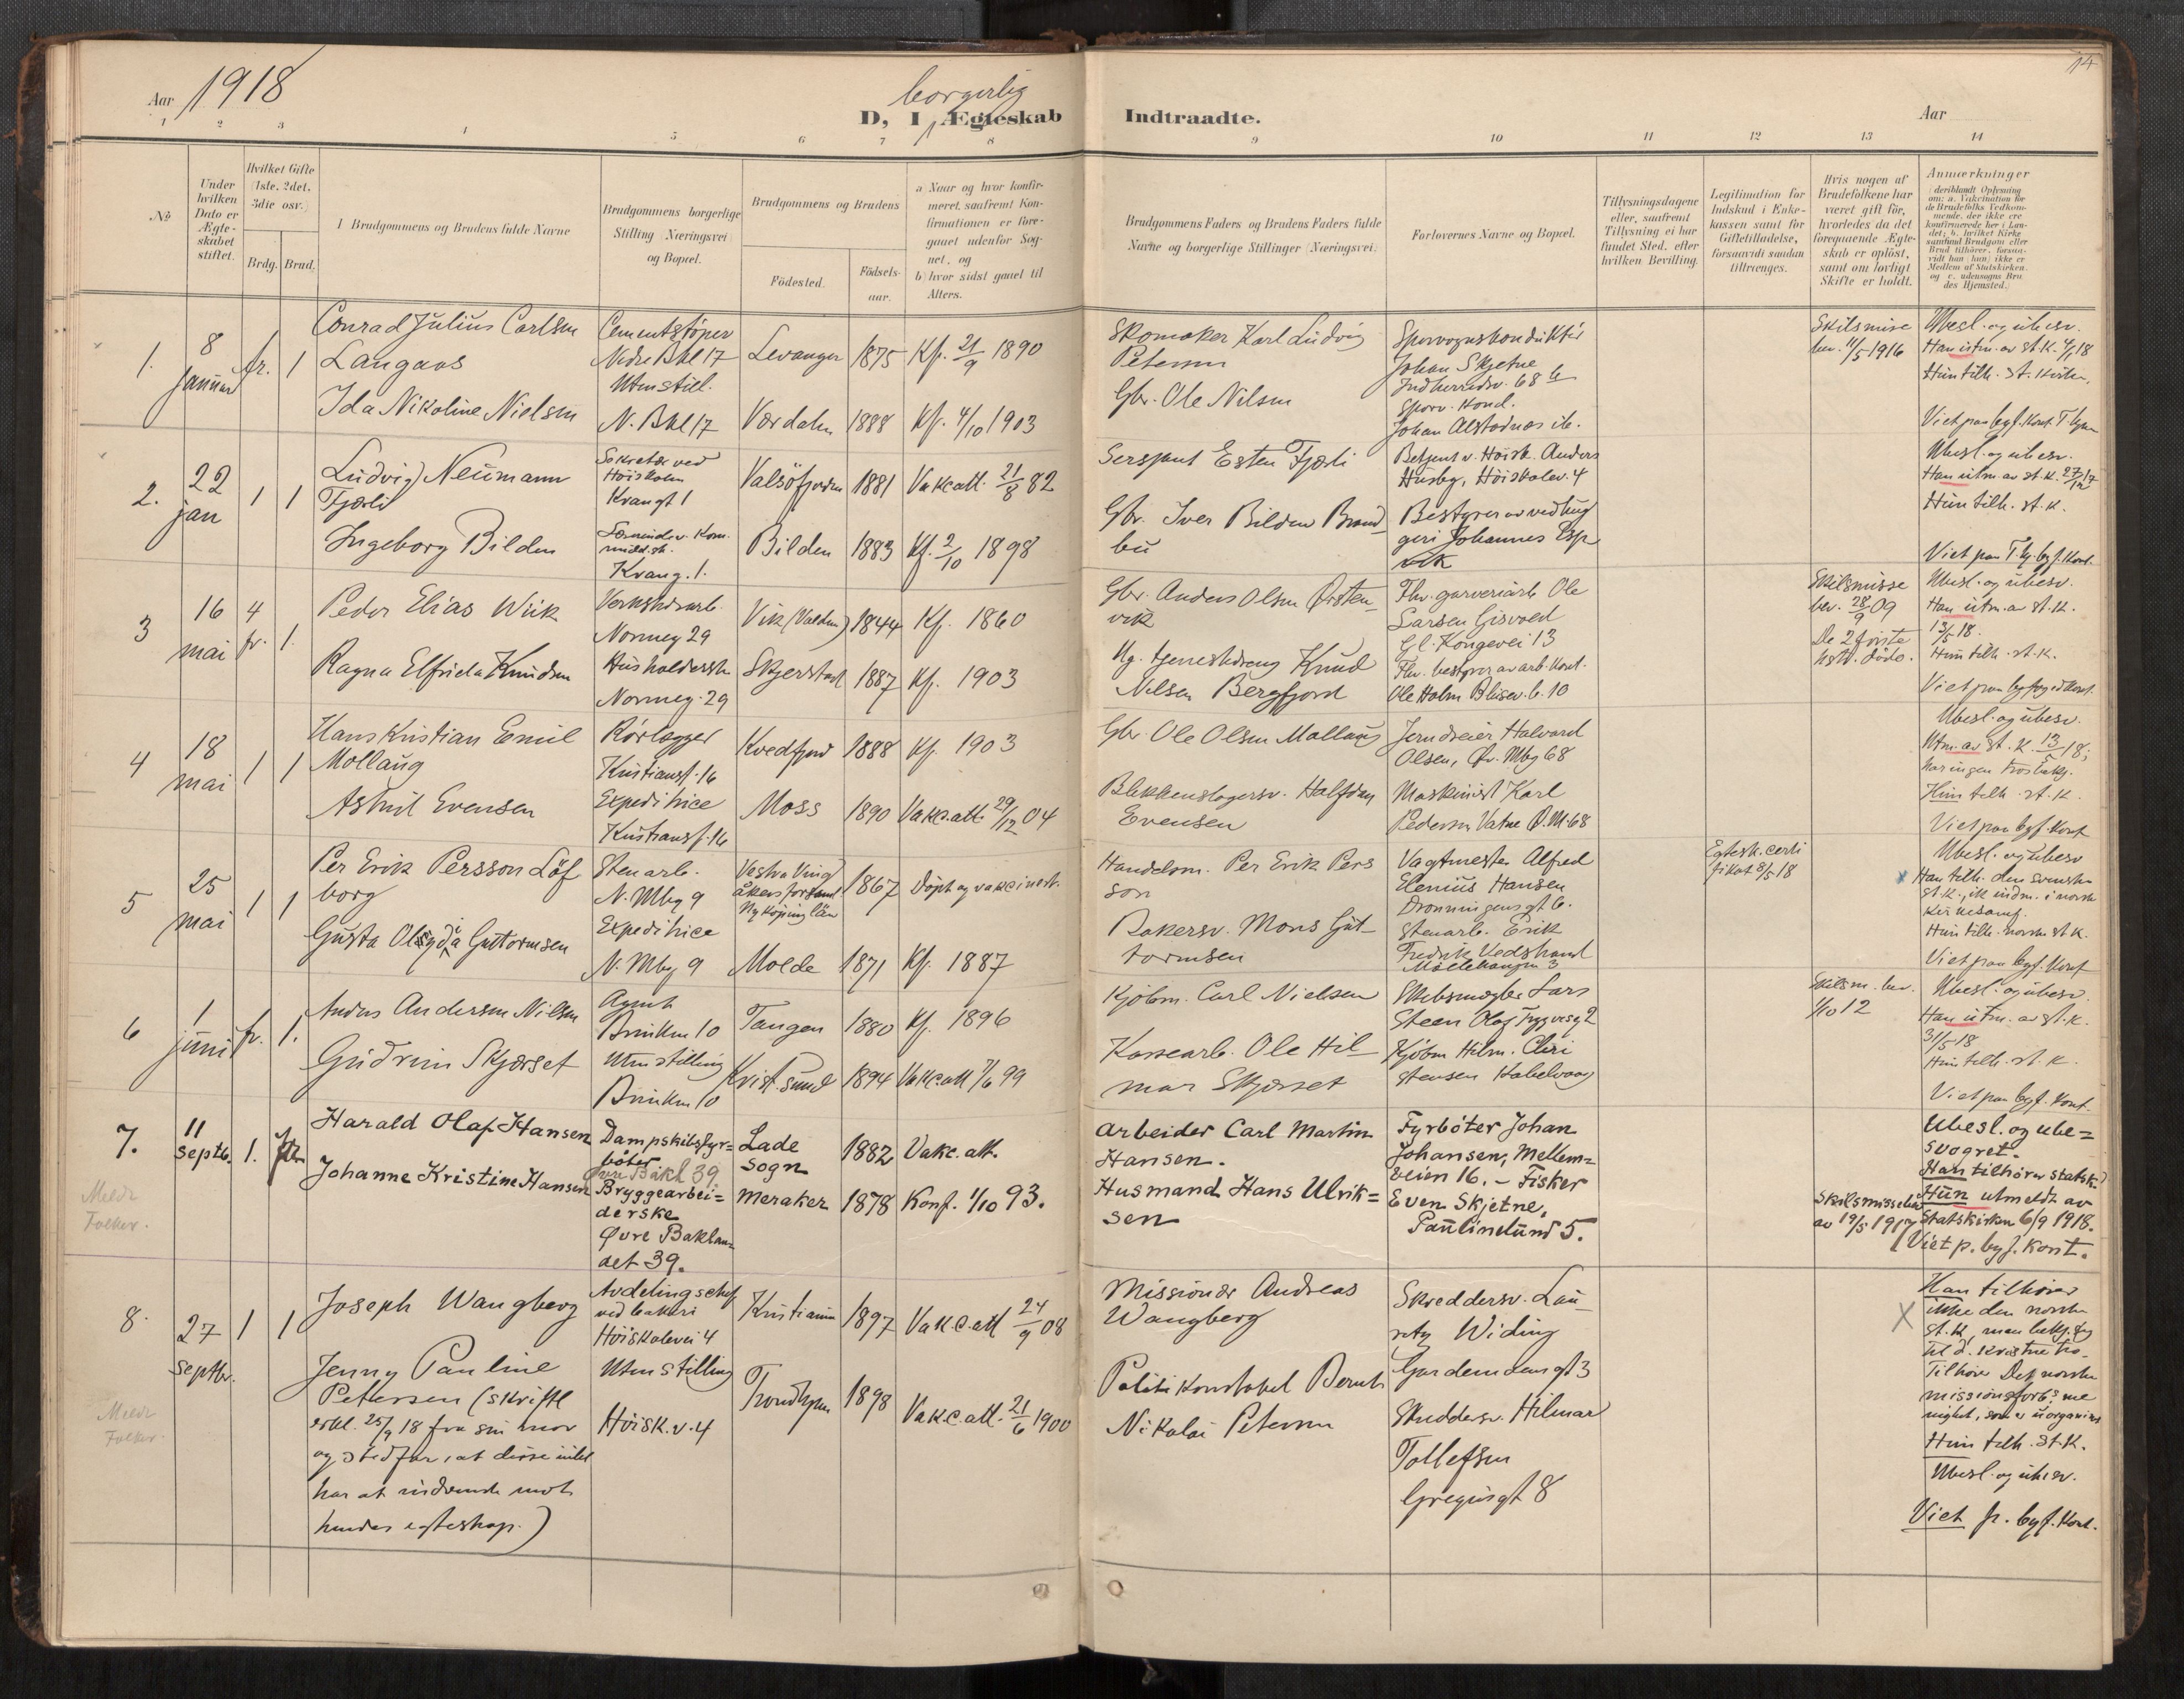 Aar 1918
borgerlig
D, I Ægteskab Indtraadte.
Aar
14
1 2 3 4 5 6 7 8 9 10 11 12 13 14
No
Under hvilken Dato er Ægteskabet stiftet.
Hvilket Gifte (1ste, 2det, 3die osv.)
Brdg. Brud.
I Brudgommens og Brudens fulde Navne
Brudgommens borgerlige Stilling (Næringsvei) og Bopæl.
Brudgommens og Brudens
Födested.
Födselsaar.
a) Naar og hvor konfirmeret, saafremt Konfirmationen er foregaaet udenfor Sognet, og
b) hvor sidst gaaet til Alters.
Brudgommens Faders og Brudens Faders fulde Navne og borgerlige Stillinger (Næringsvei).
Forlovernes Navne og Bopæl.
Tillysningsdagene eller, saafremt Tillysning ei har fundet Sted, efter hvilken Bevilling.
Legitimation for Indskud i Enkekassen samt for Giftetilladelse, forsaavidt saadan tiltrænges.
Hvis nogen af Brudefolkene har været gift før, hvorledes da det foregaaende Ægteskab er oplöst, samt om lovligt Skifte er holdt.
Anmærkninger
(deriblandt Oplysning om: a. Vakcination for de Brudefolks Vedkommende, der ikke ere konfirmerede her i Landet; b. hvilket Kirkesamfund Brudgom eller Brud tilhörer, forsaavidt han (hun) ikke er Medlem af Statskirken, og c. udensogns Brudes Hjemsted.)
1. 8 januar fr. 1
Conrad Julius Carlsen
Langaas
Ida Nikoline Nielsen
Cementstøper
Nedre Bkl 17
Uten still.
N. Bkl 17
Levanger 1875 Kf. 21/9 1890
Værdalen 1888 Kf. 4/10 1903
Skomaker Karl Ludvig
Petersen
Gbr. Ole Nilsen
Sporvognskonduktør
Johan Skjetne
Indherredsv. 68 b
Sporv. kond.
Johan Alstadnæs ib.
Skilsmisse
bev. 11/5 1916
Ubesl. og ubesv.
Han utm. av st.k. 4/1 18
Hun tilh. st. kirken,
Viet paa bygf. kont T.hjem
2. 22 jan 1 1
Ludvig Neumann
Fjærli
Ingeborg Bilden
Sekretær ved
Høiskolen
Kvangt 1
Kvang. 1.
Valsöfjorden 1881 Vakc att. 21/8 82
Bilden 1883 Kf. 2/10 1898
Sersjant Esten Fjærli
Gbr. Iver Bilden Brandbu
Betjent v. Høisk. Anders
Husby, Höiskolev. 4
Bestyrer av vedhuggeri Johannes Espvik
Ubesl. og ubesv.
Han utm. av st.k. 27/12 17
Hun tilh. st. k.
Viet paa T.hj. byf. kont.
3 16 mai 4 fr. 1.
Peder Elias Wiik
Ragna Elfrida Knudsen
Verkstedarb.
Normeg 29
Husholderske
Normeg. 29
Vik (Valden) 1844 Kf. 1860
Skjerstad 1887 Kf. 1903
Gbr. Anders Olsen Østenvik
Ug. tjenestedreng Knud
Nilsen Bergfjord
Fhv. garveriarb Ole
Larsen Gisvold
Gl. Kongevei 13
Fhv. bestyrer av arb. kont.
Ole Holm
Skilsmisse
bev. 28/9 09
De 2 første
døde.
Ubesl. og ubesv.
Han utm. av st.k.
13/5 18.
Hun tilh. st. k.
Viet paa byfogedkont.
4 18 mai 1 1
Hans Kristian Emil
Mollaug
Astrid Evensen
Rørlegger
Kristiansf. 16
Expeditrice
Kristiansf. 16
Kvedfjord 1888 Kf. 1903
Moss 1890 Vakc. att. 29/12 04
Gbr Ole Olsen Mollaug
Blikkenslagersv. Halfdan
Evensen
Jerndreier Halvard
Olsen, Øv. Mbg 68
Maskinist Karl
Pedersen Vatne Ø. M. 68
Ubesl. og ubesv.
Utm. av st. k. 13/5 18;
har ingen trosbekj.
Hun tilh. st. k.
Viet paa byf. kont
5 25 mai 1 1
Per Erik Persson Löfborg
Gusta Olgyda Guttormsen
Stenarb.
N. Mbg 9
Expeditrice
N. Mbg 9
Vestra Vingåkers forsaml.
Nyköping län 1867 Døpt og vakcinert.
Molde 1871 Kf. 1887
Handelsm. Per Erik Persson
Bakersv. Mons Guttormsen
Vagtmester Alfred
Elenius Hansen
Dronningensgt 6.
Stenarb. Erik
Fredrik Vedstrand
Möllebakken 3
Egtesk. certifikat 8/5 18
Ubesl. og ubesv
Han tilh. den svenske
st. k., ik indm. i norsk
kirkesamf.
Hun tilh. norske st k.
Viet paa bygf. kont
6 1 juni fr. 1.
Anders Andersen Nilsen
Gudrun Skjærset
Agent
Brinken 10
Uten stilling
Brinken 10
Tangen 1880 Kf. 1896
Krist.sund 1894 Vakc att 7/6 99
Kjøbm. Carl Nielsen
Kassearb. Ole Hilmar Skjærset
Skibsmægler Lars
Steen Olaf Trygvesg 2
Kjøbm Hilm. Christensen Kabelvaag
Skilsm. bev.
1/10 12
Ubesl. og ubesv.
Han utm. av st.k.
31/5 18
Hun tilh. st. k.
Viet paa bygf. kont.
7. 11 septb. 1. fr.
Harald Olaf Hansen
Johanne Kristine Hansen
Meldt
Folker.
Dampskibsfyrbøter
Øvre Bakl 39.
Bryggearbeiderske
Øvre Baklandet 39.
Lade
sogn 1882 Vakc. att.
Meraker 1878 Konf. 1/10 93.
Arbeider Carl Martin
Hansen.
Husmand Hans Ulriksen
Fyrbøter Johan
Johansen, Mellemveien 16. – Fisker
Even Skjetne,
Paulinelund 5.
Skilsmissebev
av 19/5 1917
Ubesl. og ubesvogret.
Han tilhører statsk.
Hun utmeldt av
Statskirken 6/9 1918.
Viet p. byf. kont.
8. 27 septbr. 1 1
Joseph Wangberg
Jenny Pauline
Petersen (skriftl
erkl. 25/9 18 fra sin mor
og stedfar, at disse intet
har at indvende mot
hendes egteskap.)
Meldt
Folker.
Avdelingschef
ved bakeri
Höiskolevei 4
Uten stilling
Höisk.v. 4
Kristiania 1897 Vakc. att 24/9 08
Trondhjem 1898 Vakc. att. 21/6 1900
Missionær Andreas
Wangberg
Politikonstabel Bernt
Nikolai Petersen
Skreddersv. Lauritz Widing
Gardemoensgt 3
Skreddersv. Hilmar
Tollefsen
Gregusgt 8
Han tilhører
ikke den norske
st. k, men bekj. sig
til d. kristne tro.
Tilhører Det norske
missionsforb.s menighet, som er uorganisert
Hun tilh. st. k.
Ubesl. og ubesv.
Viet p. byf. kont.